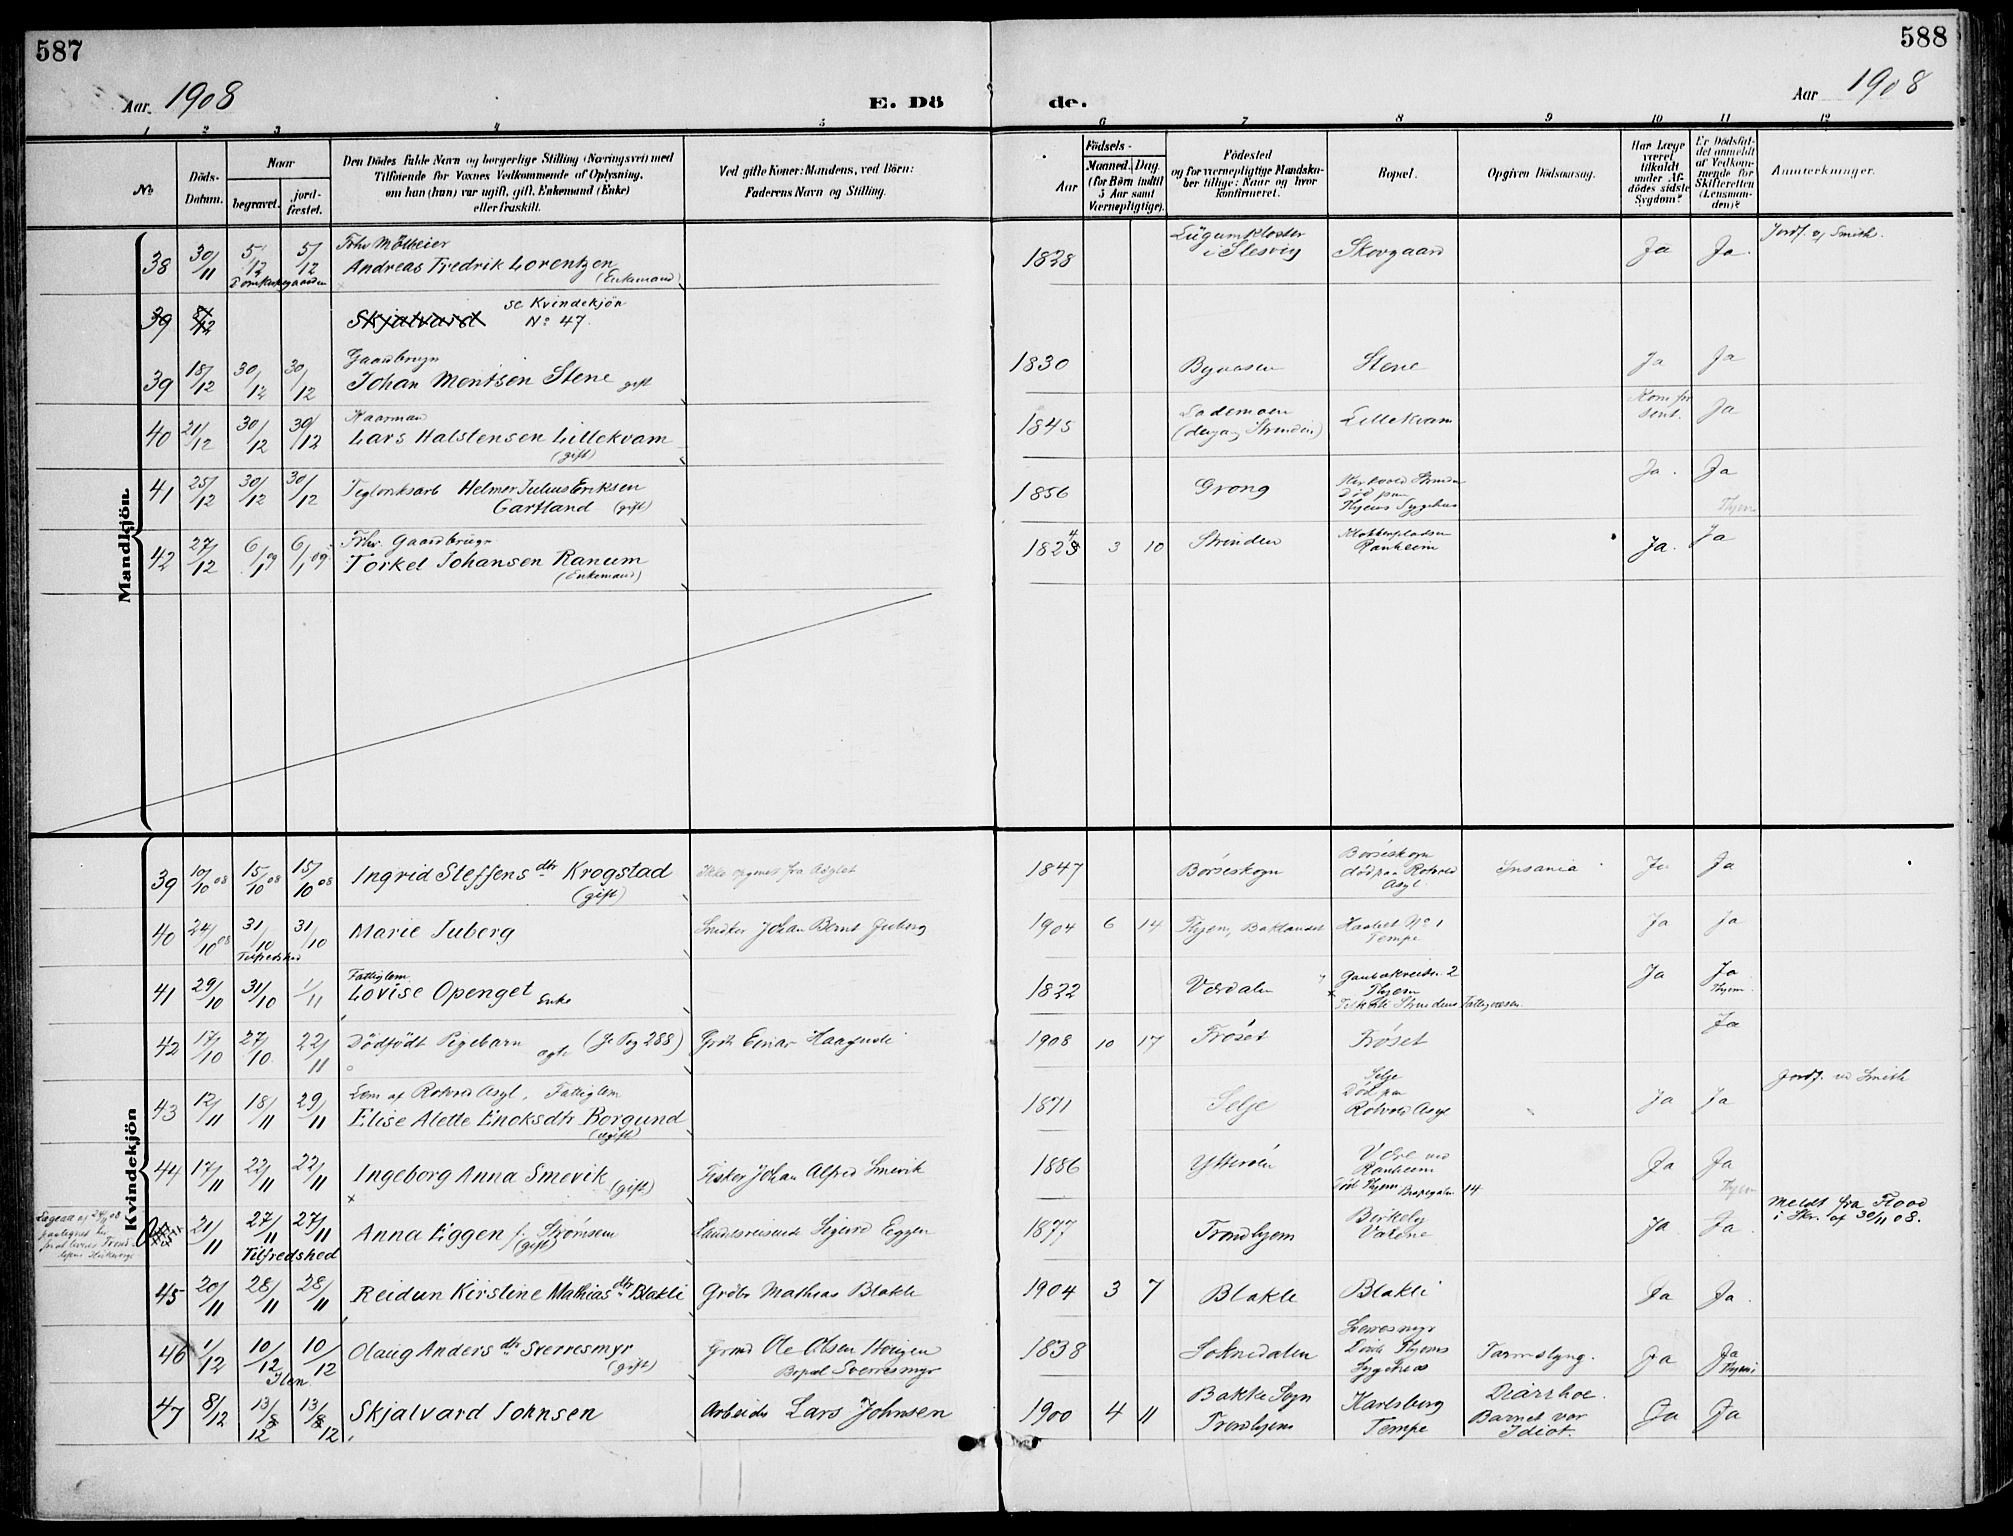 587
588
Aar 1908
E. Dö
de.
Aar 1908
1 2 3 4 5
6 7 8 9 10 11 12
No
Döds-
Datum.
Naar
begravet.
jord-
fæstet.
Den Dödes fulde Navn og borgerlige Stilling (Næringsvei) med
Tilföiende for Voxnes Vedkommende af Oplysning,
om han (hun) var ugift, gift, Enkemand (Enke)
eller fraskilt.
Ved gifte Koner: Mandens, ved Börn:
Faderens Navn og Stilling.
Aar
Födsels-
Maaned. Dag.
(for Börn indtil
5 Aar samt
Værnepligtige).
Födested
og for værnepligtige Mandska-
ber tillige: Naar og hvor
konfirmeret.
Bopæl.
Opgiven Dödsaarsag.
Har Læge
været
tilkaldt
under Af-
dödes sidste
Sygdom?
Er Dödsfal-
det anmeldt
af Vedkom-
mende for
Skifteretten
(Lensman-
den)?
Anmerkninger.
Mandkjön.
38 30/11 5/12 5/12 Fhv Mölleier
Andreas Fredrik Lorentzen
(Enkemand)
Domkirkegaarden
1828 Lügumkloster
i Slesvig Skovgaard Ja Ja. Jordf. v/ Smith.
39 8/12 Skjalvard se Kvindekjön
No 47.
39 18/12 30/12 30/12 Gaardbruger
Johan Mentsen Stene gift
1830 Byneset Stene Ja Ja
40 21/12 30/12 30/12 Kaarmand
Lars Halstensen Lillekvam
(gift)
1845 Lademoen
(dengang Strinden) Lillekvam Kom for
sent. Ja
41 25/12 30/12 30/12 Teglverksarb Helmer Julius Eriksen
Gartland (gift)
1856 Grong
Död paa
Thjems Sygehus Ja. Ja
Thjem
42 27/12 6/1 09 6/1 09 Fhv. Gaardbruger
Torkel Johansen Ranum
(Enkemand)
1824 3 10 Strinden Klokkerpladsen
Ranheim Ja. Ja
Kvindekjön
39 10/10 08 15/10 08 15/10 08 Ingrid Steffensdtr Krogstad
(gift)
Ikke opgivet fra Asylet
1847 Börseskogn Börseskogn
död paa Rotvold
Asyl Insania Ja Ja
40 24/10 08 31/10 31/10 Marie Juberg
Tilfredshed
Snedker Johan Bernt Juberg
1904 6 14 Thjem, Baklandet Haabet No 1
Tempe Ja Ja
41 29/10 31/10 1/11 Fattiglem
Lovise Openget Enke
1822 Verdalen
Thjem
Ja Ja
Thjem
42 17/10 27/10. 22/11 Dödfödt Pigebarn ægte (Je Pag 288)
Grdbr Einar
1908 10 17 Fröset Fröset Ja
43 12/11 18/11 29/11 Lem af Rotvold Asyl, Fattiglem
Elise Alette Enoksdtr Borgund
(ugift)
1871 Selje Selje
Död paa
Rotvold Asyl Ja Ja Jordf. ved Smith
44 17/11 22/11 22/11 Ingeborg Anna Smevik (gift)
Fisker Johan Alfred Smevik
1886 Ytterøen Være ved
Ranheim
död Thjem 14 Ja Ja
Thjem
21/11 27/11 27/11 Anna Eggen f. Strömsem
(gift)
Tilfredshed
Landsreisende Sigurd Eggen
1877 Trondhjem Birkely
Ja Ja. Meldt fra Flood
i Skr. af 30/11 08.
45 20/11 28/11 28/11 Reidun Kirstine Mathiasdtr Blakli
Grdbr Mathias Blakli
1904 3 7 Blakli Blakli Ja Ja.
46 1/12 10/12 10/12 Olaug Andersdtr Sverresmyr
(gift)
Ilen
Grmd Ole Olsen
Bopæl Sverresmyr
1838 Soknedalen Sverresmyr
Döde Thjems
Sygehus Tarmslyng. Ja Ja
Thjem
47 8/12 13/12 13/12 Skjalvard Johnsen
Arbeider Lars Johnsen
1900 4 11 Bakke Sogn
Trondhjem Karlsberg
Tempe Diarrhoe.
Barnet var
Idiot. Ja Ja